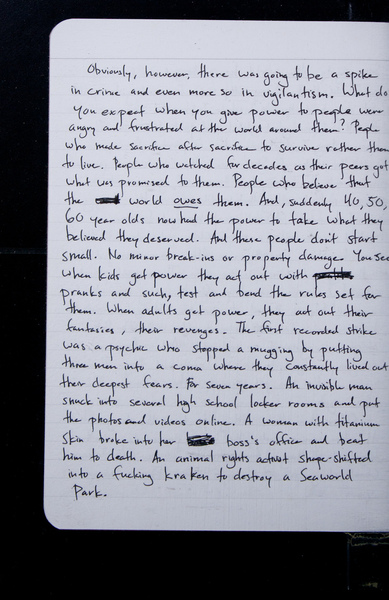 Obviously, however, there was going to be a spike
in crime and even more so in vigilantism. What do
you expect when you give power to people were
angry and frustrated at the world around them? People
who made sacrifice after sacrifice to survive rather than
to live. People who watched for decades as their peers got
what was promised to them. People who believe that
the world owes them. And, suddenly 40, 50,
60 year olds now had the power to take what they
believed they deserved. And these people don't start
small. No minor break-ins or property damage. You see
when kids get power they act out with
pranks and such, test and bend the rules set for
them. When adults get power, they act out their
fantasies, their revenges. The first recorded strike
was a psychic who stopped a mugging by putting
three men into a coma where they constantly lived out
their deepest fears. For seven years. An invisible man
snuck into several high school locker rooms and put
the photos and videos online. A woman with titanium
skin broke into her boss's office and beat
him to death. An animal rights activist shape-shifted
into a fucking kraken to destroy a Seaworld
Park.